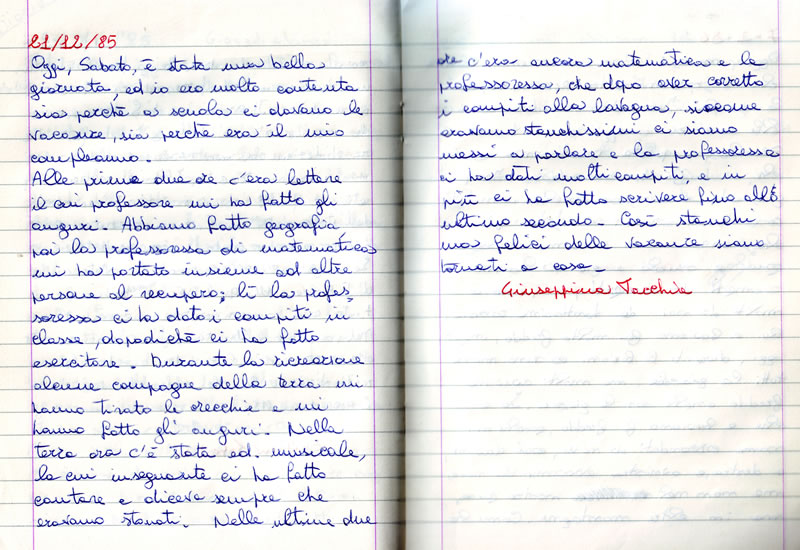 21/12/85
Oggi, Sabato, è stata una bella
giornata, ed io ero molto contenta
sia perchè a scuola ci davano le
vacanze, sia perchè era il mio
compleanno.
Alle prime due ore c'era lettere
il cui professore mi ha fatto gli
auguri. Abbiamo fatto geografia,
poi la professoressa di matematica
mi ha portato insieme ad altre
persone al recupero; lì la profes-
soressa ci ha dato i compiti in
classe, dopodichè ci ha fatto
esercitare. Durante la ricreazione
alcune compagne della terza mi
hanno tirato le orecchie e mi
hanno fatto gli auguri. Nella
terza ora c'è stata ed. musicale,
la cui insegnante ci ha fatto
cantare e diceva sempre che
eravamo stonati. Nelle ultime due
ore c'era ancora matematica e la
professoressa, che dopo aver corretto
i compiti alla lavagna, siccome
eravamo stanchissimi ci siamo
messi a parlare e la professoressa
ci ha dati molti compiti, e in
più ci ha fatto scrivere fino all'
ultimo secondo. Così stanchi
ma felici delle vacanze siamo
tornati a casa.
Giuseppina Tacchia